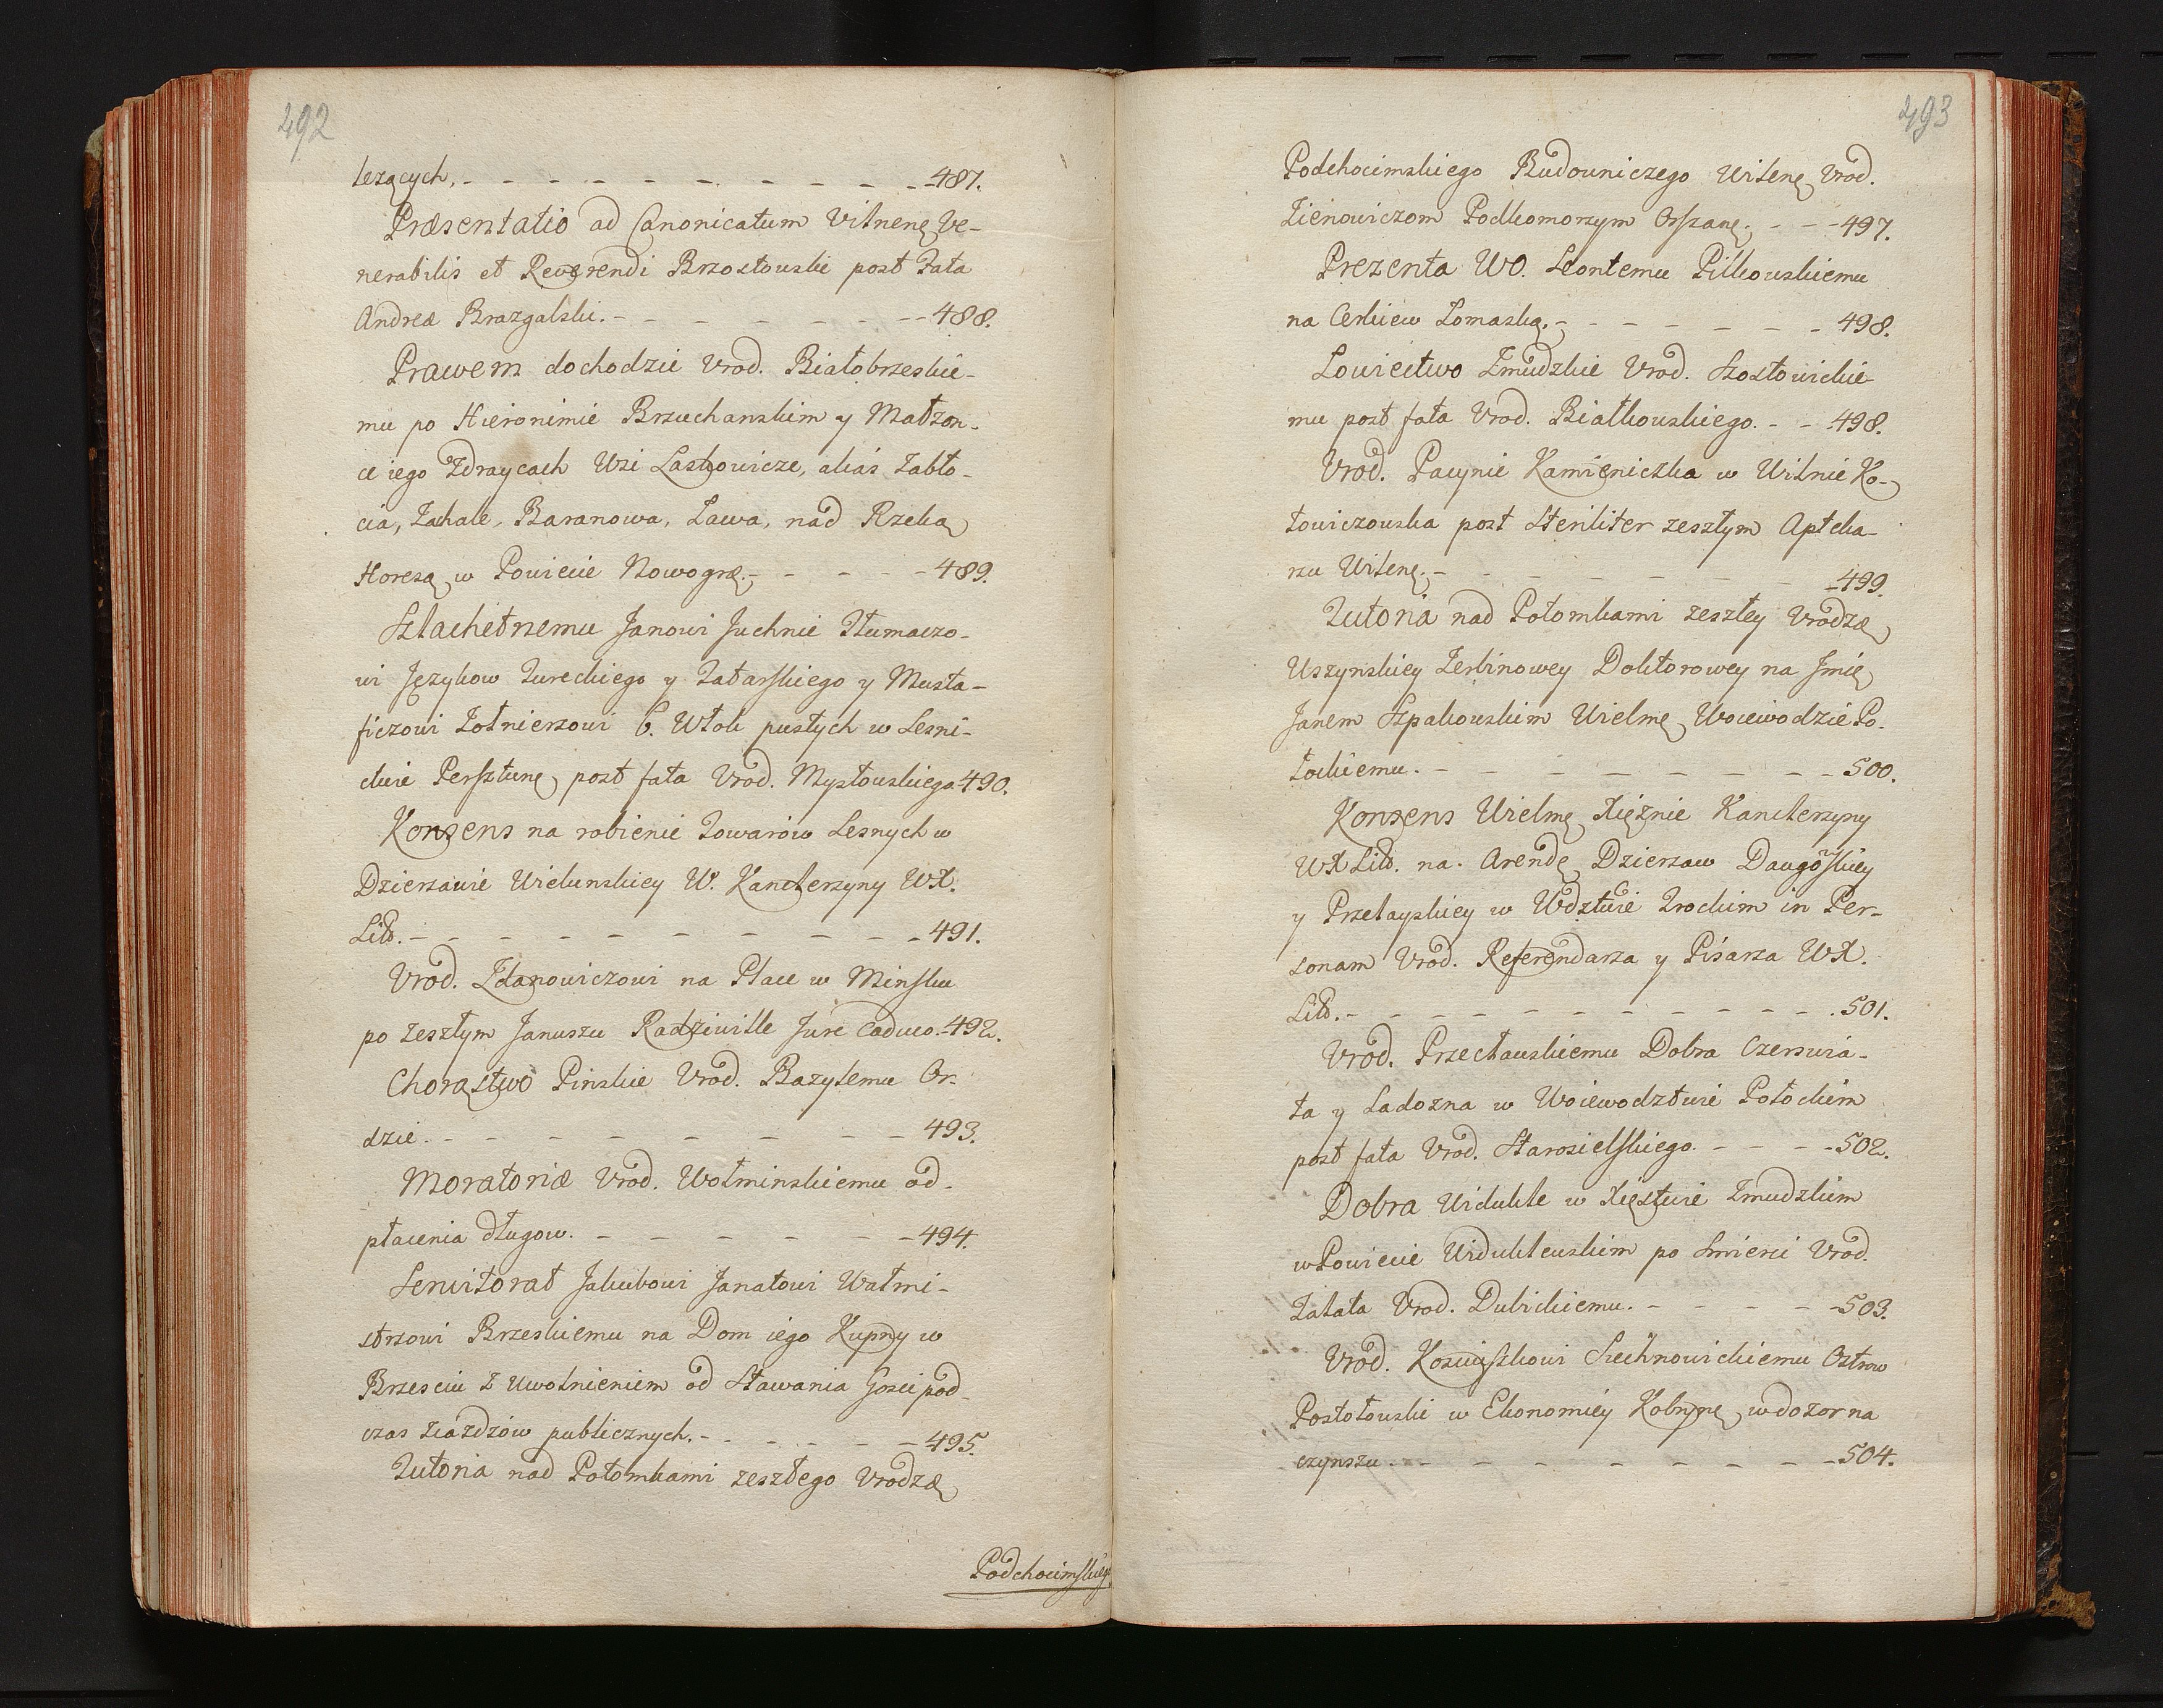 492
lezących. - - - - - - - - - 487.
Præsentatio ad Canonicatum Vilnenę Ve-
nerabilis et Reverendi Brzostouski post Fata
Andreæ Brazgalski. - - - - - - - 488.
Prawem dochodzie Urod. Białobrzeskie-
mu po Hieronimie Brzuchanskim y Małzon-
ce iego Zdraycach Wsi Laskowicze, alias Zabło-
cia, Zahale, Baranowa, Lawa, nad Rzeką
Horeszą w Powiecie Nowogrę. - - - - 489.
Szlachetnemu Janowi Juchnie Tłumaczo-
wi Językow Tureckiego y Tatarskiego y Musta-
ficzowi Żołnierzowi 6. Włok pustych w Lesni-
ctwie Persztunę post fata Urod. Mysłouskiego 490.
Konsens na robienie Towarów Lesnych w
Dzierzawie Wielunskiey W. Kanclerzyny WX.
Litt. - - - - - - - - - 491.
Urod. Zdanowiczowi na Place w Minsku
po zeszłym Januszu Radziwille Jure Caduco. 492.
Chorąstwo Pinskie Urod. Bazylemu Or-
dzie. - - - - - - - - 493.
Moratoriæ Urod. Wołminskiemu od
płacenia długow. - - - - - - 494.
Serwitorat Jakubowi Janatowi Watmi-
strzowi Brzeskiemu na Dom iego Kupny w
Brzesciu z Uwolnieniem od Stawania Gosci pod-
czas ziazdzów publicznych. - - - - - 495.
Tutoria nad Potomkami zeszłego Urodzę
Podchocimskiego
493
Podchocimskiego Budowniczego Wilenę Urod.
Zienowiczom Podkomorzym Orszanę. - - - 497.
Prezenta WO. Leontemu Pilkouskiemu
na Cerkiew Lomaską. - - - - - - 498.
Lowiectwo Zmudzkie Urod. Szostowickie-
mu post fata Urod. Białkouskiego. - - 498.
Urod. Pacynie Kamieniczka w Wilnie Ko-
towiczouska post Steriliter zeszłym Apteka-
rzu Wilenę. - - - - - - - 499.
Tutoria nad Potomkami zeszłey Urodzę
Uszynskiey Zerbinowey Doktorowey na Jmię
Janem Szpakouskim Wielmę Woiewodzie Po-
łockiemu. - - - - - - - - 500.
Konsens Wielmę Xiężnie Kanclerzyny
WX Litt. na Arendę Dzierzaw Daugoskiey
y Przełayskiey w Wdztwie Trockim in Per-
sonam Urod. Referendarza y Pisarza WX.
Litt. - - - - - - - - - 501.
Urod. Przecłauskiemu Dobra Czerswia-
ta y Ladozna w Woiewodztwie Połockim
post fata Urod. Starosielskiego. - - - - 502.
Dobra Widukle w Xięstwie Zmudzkim
w Powiecie Widukleuskim po Smierci Urod.
Zalata Urod. Dubickiemu. - - - - - 503.
Urod. Kosciuszkowi Siechnowickiemu Ostrow
Postołouski w Ekonomiey Kobrynę w dozor na
czynszu. - - - - - - - - 504.